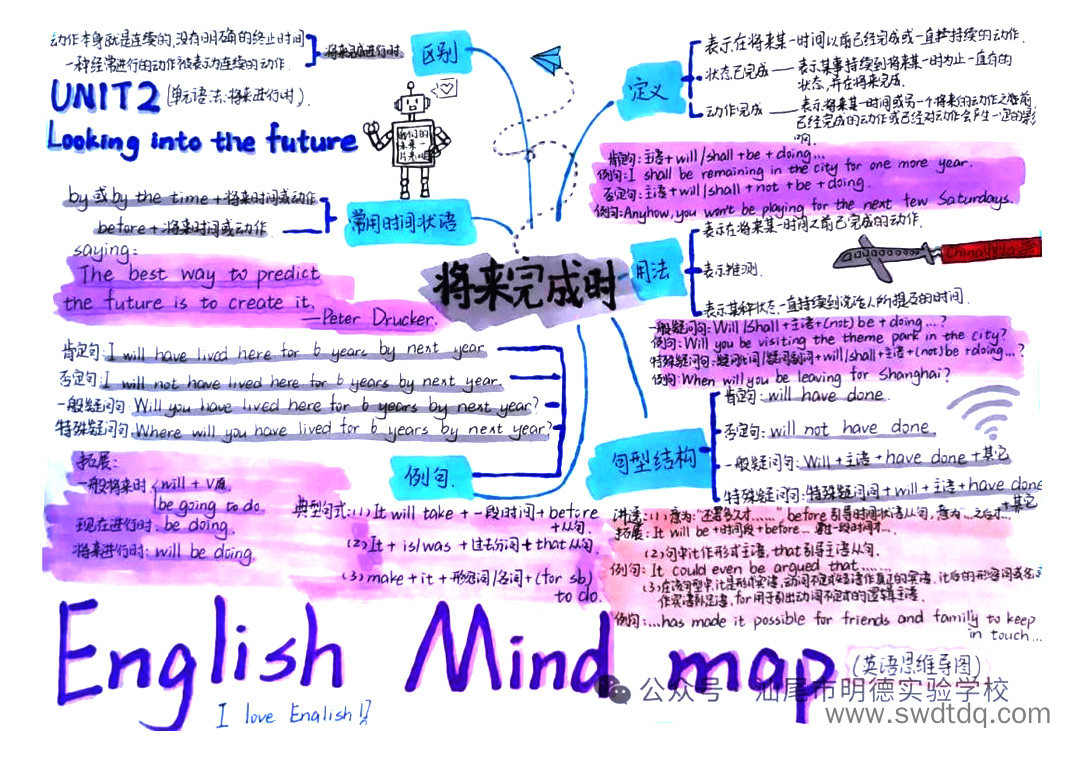 动作本身就是连续的,没有明确的终止时间
一种经常进行的动作被表示为连续的动作.
将来完成进行时.
区别
UNIT2 (单元语法:将来进行时).
Looking into the future
by 或 by the time + 将来时间或动作
before + 将来时间或动作.
常用时间状语
saying:
The best way to predict
the future is to create it.
—Peter Drucker.
将来完成时
定义
表示在将来某一时间以前已经完成或一直持续的动作.
状态已完成 — 表示某事持续到将来某一时为止一直有的
状态,并在将来完成.
动作完成 — 表示将来某一时间或另一个将来的动作之前,
已经完成的动作或已经对动作会产生一定的影
响.
肯定句: 主语 + will / shall + be + doing...
例句: I shall be remaining in the city for one more year.
否定句: 主语 + will / shall + not + be + doing.
例句: Anyhow, you won't be playing for the next few Saturdays.
用法
表示在将来某一时间之前已完成的动作.
表示推测.
表示某种状态一直持续到说话人所提及的时间.
一般疑问句: Will /Shall + 主语 + (not) be + doing...?
例句: Will you be visiting the theme park in the city?
特殊疑问句: 疑问代词/疑问副词 + will / shall + 主语 + (not) be + doing...?
例句: When will you be leaving for Shanghai?
肯定句: I will have lived here for 6 years by next year
否定句: I will not have lived here for 6 years by next year.
一般疑问句: Will you have lived here for 6 years by next year?
特殊疑问句: Where will you have lived for 6 years by next year?
例句.
句型结构
肯定句: will have done.
否定句: will not have done.
一般疑问句: Will + 主语 + have done + 其它
特殊疑问句: 特殊疑问词 + will + 主语 + have done
+ 其它
拓展:
一般将来时 will + V原
be going to do.
现在进行时: be doing.
将来进行时: will be doing.
典型句式: (1) It will take + 一段时间 + before
+ 从句.
(2) It + is/was + 过去分词 + that 从句.
(3) make + it + 形容词/名词 + (for sb)
to do.
讲透: (1) 意为:"还要多久才......" before 引导时间状语从句, 意为"...之后才..."
拓展: It will be + 时间段 + before...
(2) 句中 it 作形式主语, that 引导主语从句.
例句: It could even be argued that........
(3) 在该句型中, it 是形式宾语, 动词不定式短语作真正的宾语, it后的形容词或名词
作宾语补足语, for 用于引出动词不定式的逻辑主语.
例句: ...has made it possible for friends and family to keep
in touch...
English Mind map
(英语思维导图)
I love English!!
公众号 · 汕尾市明德实验学校
www.swdtdq.com